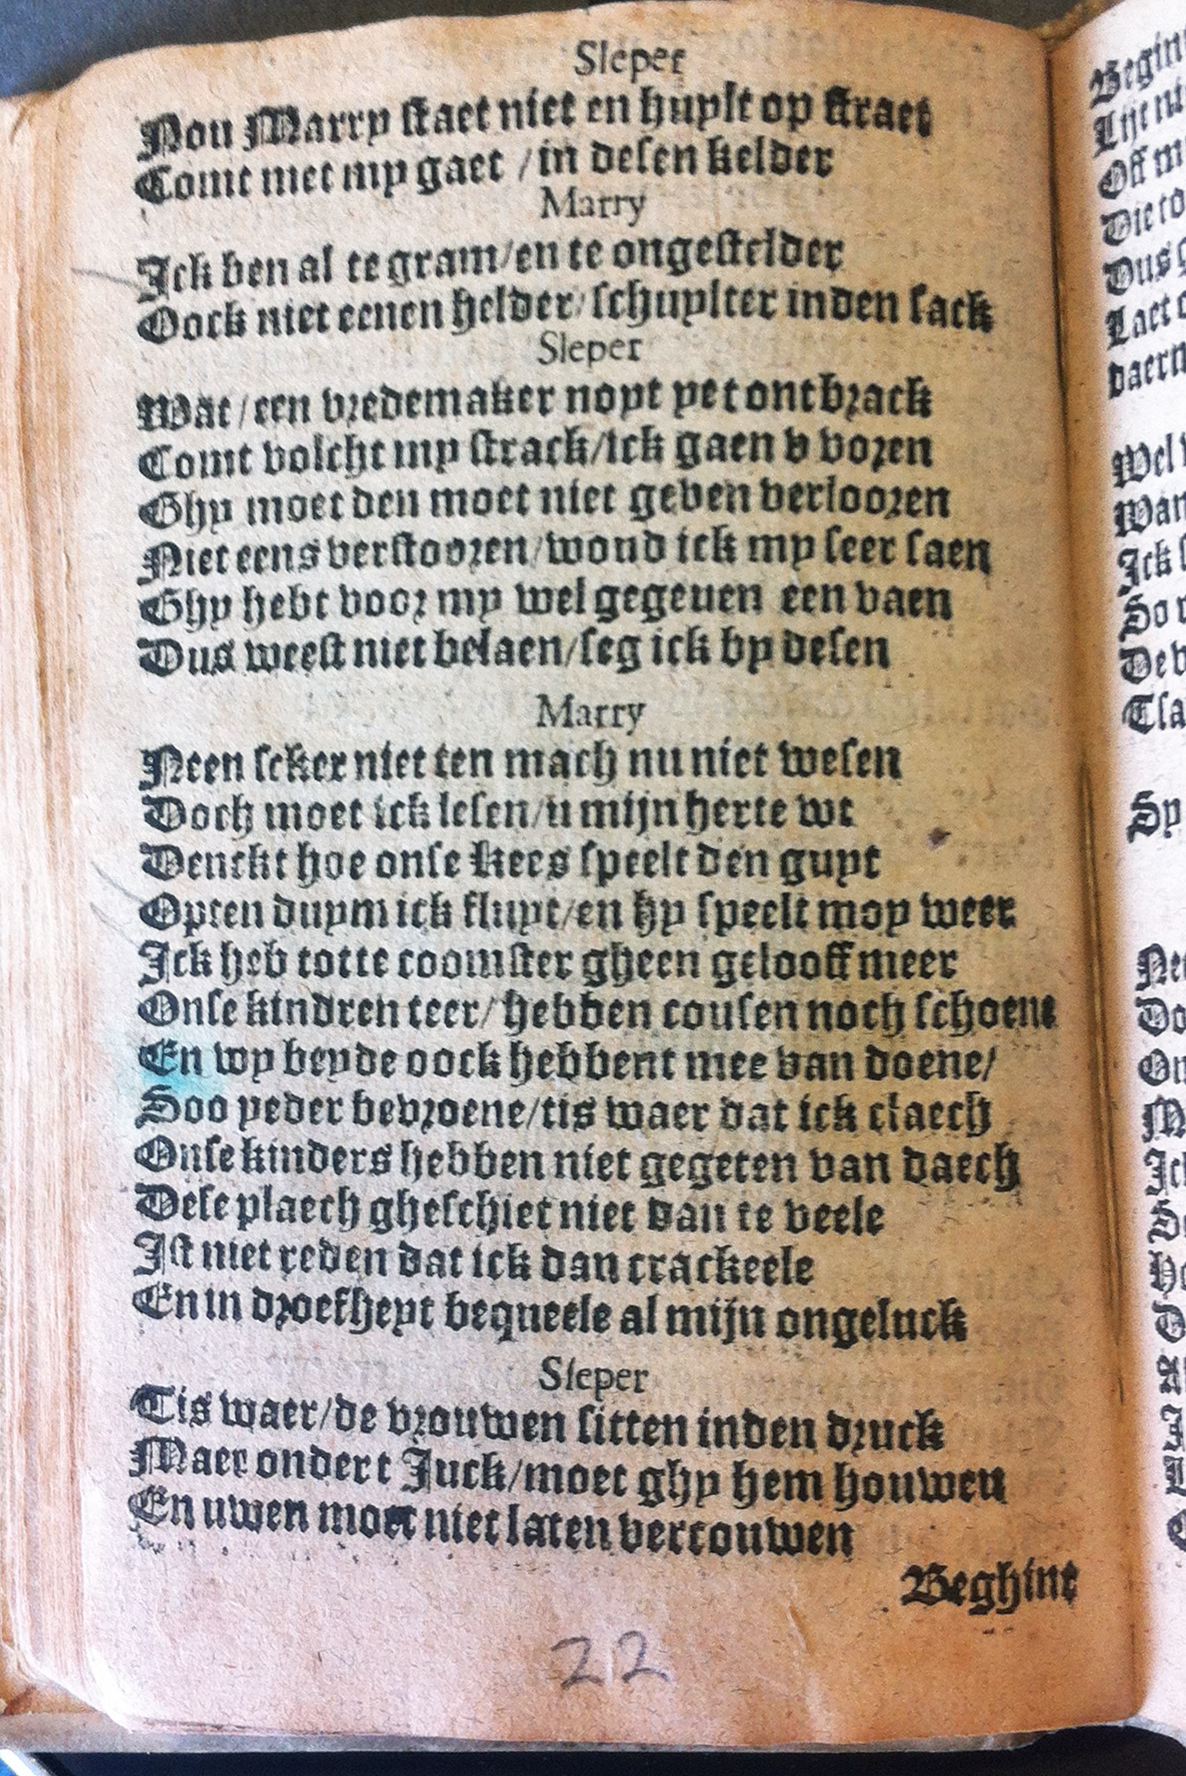 Sleper
Nou Marry staet niet en huylt op straet
Comt met my gaet / in desen kelder
Marry
Ick ben al te gram/en te ongestelder
Oock niet eenen helder/schuylter inden sack
Sleper
Wat/een vredemaker noyt yet ontbrack
Comt volcht my strack/ick gaen v voren
Ghy moet den moet niet geven verlooren
Niet eens verstooren/woud ick my seer saen
Ghy hebt voor my wel gegeuen een vaen
Dus weest niet belaen/seg ick by desen
Marry
Neen seker niet ten mach nu niet wesen
Doch moet ick lesen/u mijn herte wt
Denckt hoe onse Kees speelt den guyt
Opten duym ick fluyt/en hy speelt moy weer
Ick heb totte coomster gheen gelooff meer
Onse kindren teer/hebben cousen noch schoene
En wy beyde oock hebbent mee van doene/
Soo yeder bevroene/tis waer dat ick claech
Onse kinders hebben niet gegeten van daech
Dese plaech gheschiet niet dan te veele
Ist niet reden dat ick dan crackeele
En in droefheyt bequeele al mijn ongeluck
Sleper
Tis waer/de vrouwen sitten inden druck
Maer ondert Juck/moet ghy hem houwen
En uwen moet niet laten vercouwen
Beghine
22
Begin
Wel
Wan
Ick
So
De
Sy
On